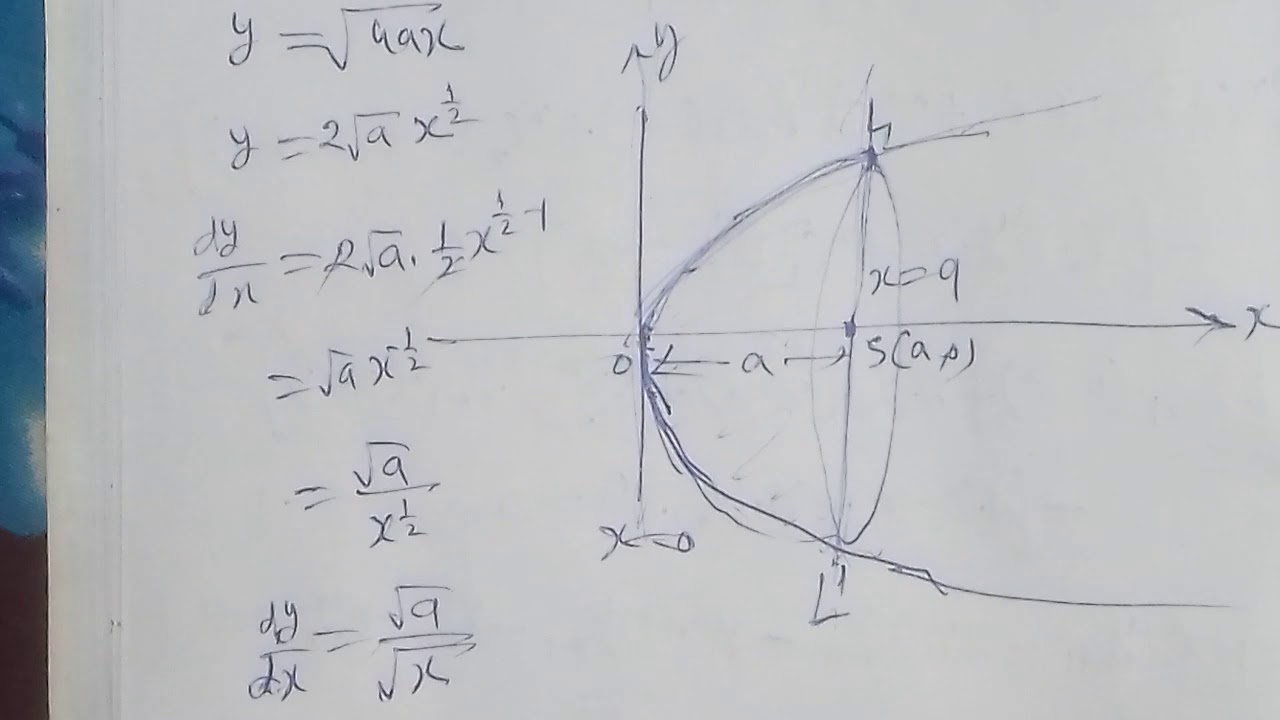 y = √4ax
y = 2√a x^½
dy/dx = 2√a . ½ x^(½ - 1)
= √a x^(-½)
= √a / x^½
dy/dx = √a / √x
y
L
x = a
x
O
a
S(a, 0)
x = 0
L'